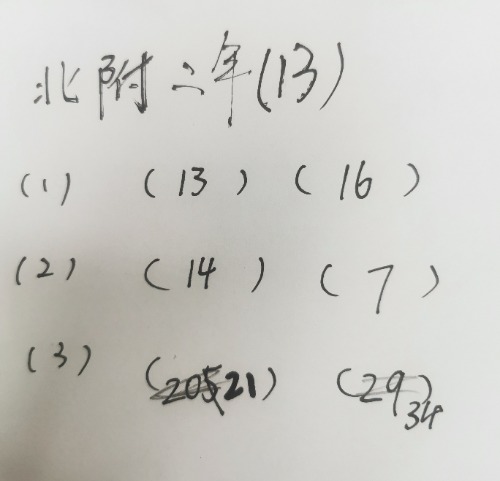 北附二年(13)
(1) (13) (16)
(2) (14) (7)
(3) (21) (34)